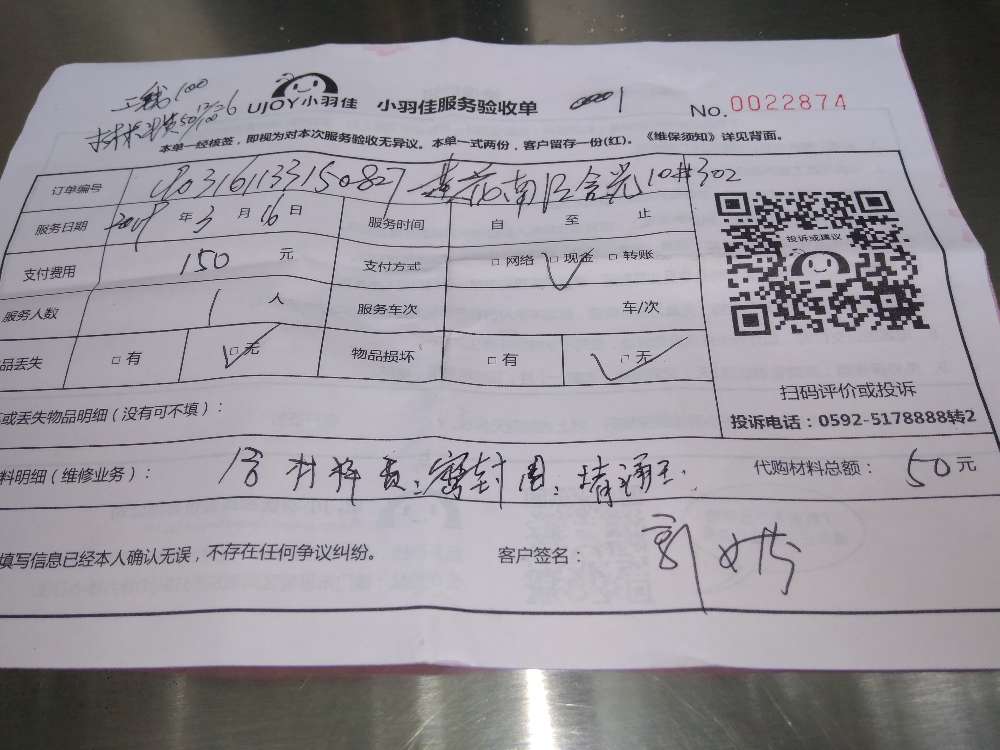 工钱100
UJOY小羽佳 小羽佳服务验收单 No.0022874
本单一经核签，即视为对本次服务验收无异议。本单一式两份，客户留存一份(红)。《维保须知》详见背面。
订单编号 10#302
服务日期 年 3 月 16 日 服务时间 自 至 止
投诉或建议
支付费用 150 元 支付方式 □网络 □现金 □转账
服务人数 1 人 服务车次 车/次
品丢失 □有 □无 物品损坏 □有 □无
扫码评价或投诉
投诉电话：0592-5178888转2
或丢失物品明细（没有可不填）：
料明细（维修业务）： 含材料费：密封圈 代购材料总额： 50元
填写信息已经本人确认无误，不存在任何争议纠纷。 客户签名：